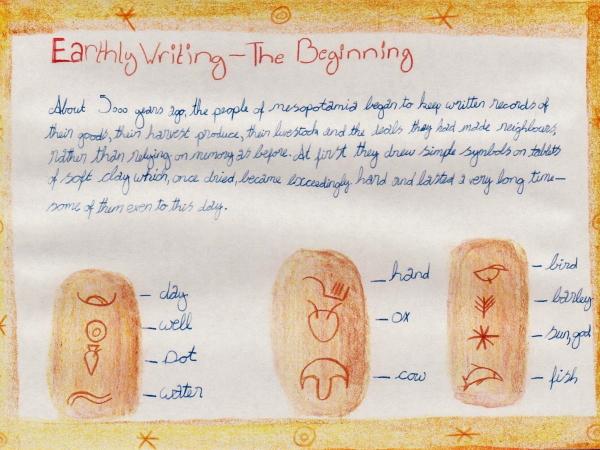 Earthly Writing—The Beginning
About 5000 years ago, the people of mesopotamia began to keep written records of
their goods, their harvest produce, their livestock and the deals they had made neighbours,
rather than relying on memory as before. At first they drew simple symbols on tablets
of soft clay which, once dried, became exceedingly hard and lasted a very long time—
some of them even to this day.
– day
– well
– pot
– water
– hand
– ox
– cow
– bird
– barley
– sun, god
– fish